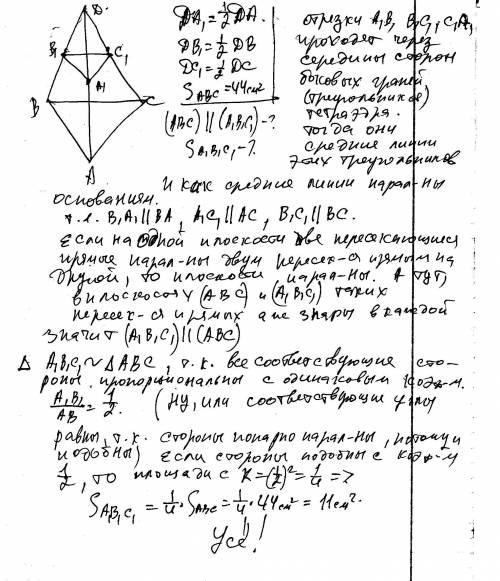 D.
B₁
C₁
A₁
B
C
A
DA₁ = 1/2 DA.
DB₁ = 1/2 DB
DC₁ = 1/2 DC
S ABC = 44 см²
(ABC) || (A₁B₁C₁) - ?
S A₁B₁C₁ - ?
отрезки A₁B₁ B₁C₁, C₁A₁
проходят через
середины сторон
боковых граней
(треугольников)
тетраэдра.
тогда они
средние линии
этих треугольников
И как средние линии парал-ны
основаниям.
т.е. B₁A₁ || BA, A₁C₁ || AC, B₁C₁ || BC.
Если на одной плоскости две пересекающиеся
прямые парал-ны двум пересек-ся прямым на
другой, то плоскости парал-ны. А тут,
в плоскостях (ABC) и (A₁B₁C₁) таких
пересек-ся прямых аж 3 пары в каждой
значит (A₁B₁C₁) || (ABC)
Δ A₁B₁C₁ ~ Δ ABC, т.к. все соответствующие сто-
роны пропорциональны с одинаковым коэф-м.
A₁B₁/AB = 1/2. (Ну, или соответствующие углы
равны, т.к. стороны попарно парал-ны, потому и
подобны) Если стороны подобны с коэф-м
1/2, то площади с K = (1/2)² = 1/4 =>
S A₁B₁C₁ = 1/4 · S ABC = 1/4 · 44 см² = 11 см².
Усё!